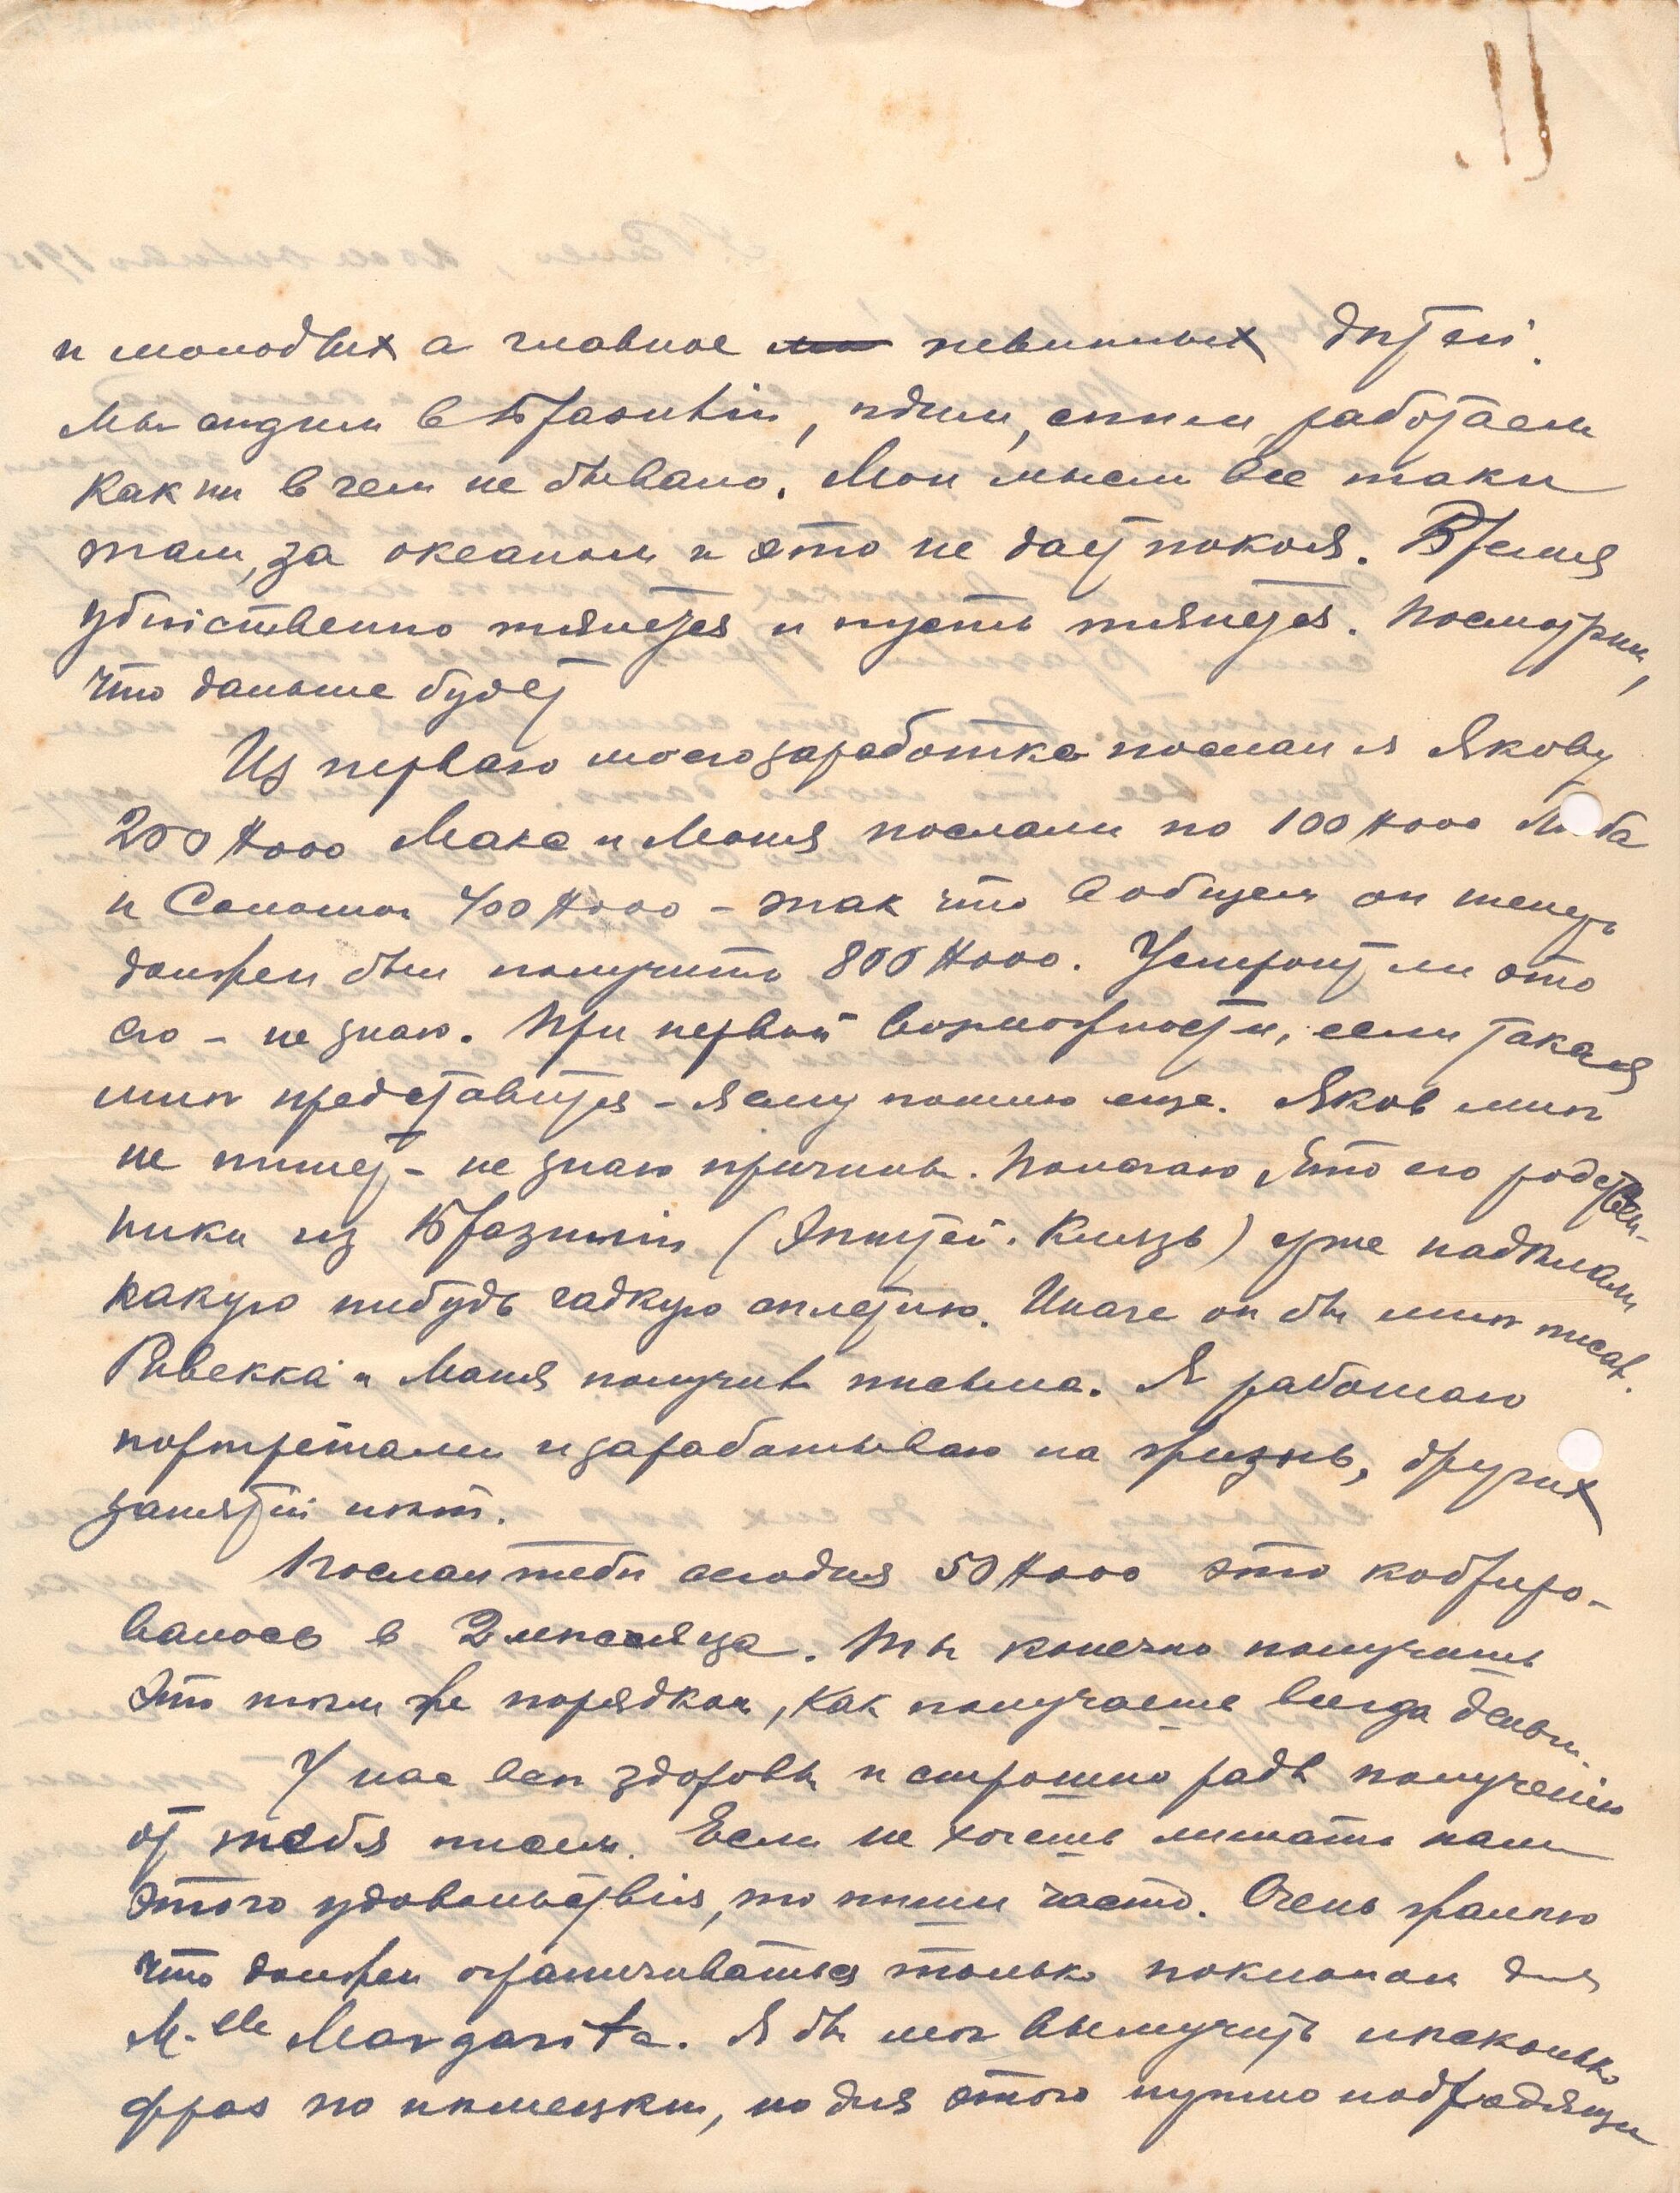 и молодых а главное невинных дѣтей.
Мы сидим в Бразилiи, ѣдим, спим, работаем
как ни в чем не бывало. Мои мысли все таки
там, за океаном и это не дает покоя. Время
убiйственно тянется и пусть тянется. Посмотрим,
что дальше будет
Из перваго моего заработка послал я Якову
200\$000 Макс и Маня послали по 100\$000 Люба
и Соломон 400\$000 – так что в общем он теперь
должен был получить 800\$000. Устроит ли это
его – не знаю. При первой возможности, если такая
мнѣ представится – я ему пошлю еще. Яков мнѣ
не пишет – не знаю причины. Полагаю что его родствен-
ники из Бразилiи ( Князь) уже надѣлали
какую нибудь гадкую сплетню. Иначе он бы мнѣ писал.
Ривекка и Маня получив письма. Я работаю
портретами и зарабатываю на жизнь, других
занятiй нѣт.
Послал тебѣ сегодня 50\$000 это
валось в 2 мѣсяца. Ты конечно получишь
это тѣм же порядком, как получаешь всегда деньги.
У нас всѣ здоровы и страшно рады полученiю
от тебя писем. Если не хочешь лишать нам
этого удовольствiя, то пиши часто. Очень жалѣю
что должен ограничиваться только поклоном для
M.lle Margarita. Я бы мог вымучить нѣсколько
фраз по нѣмецки, но для этого нужно подходящiи